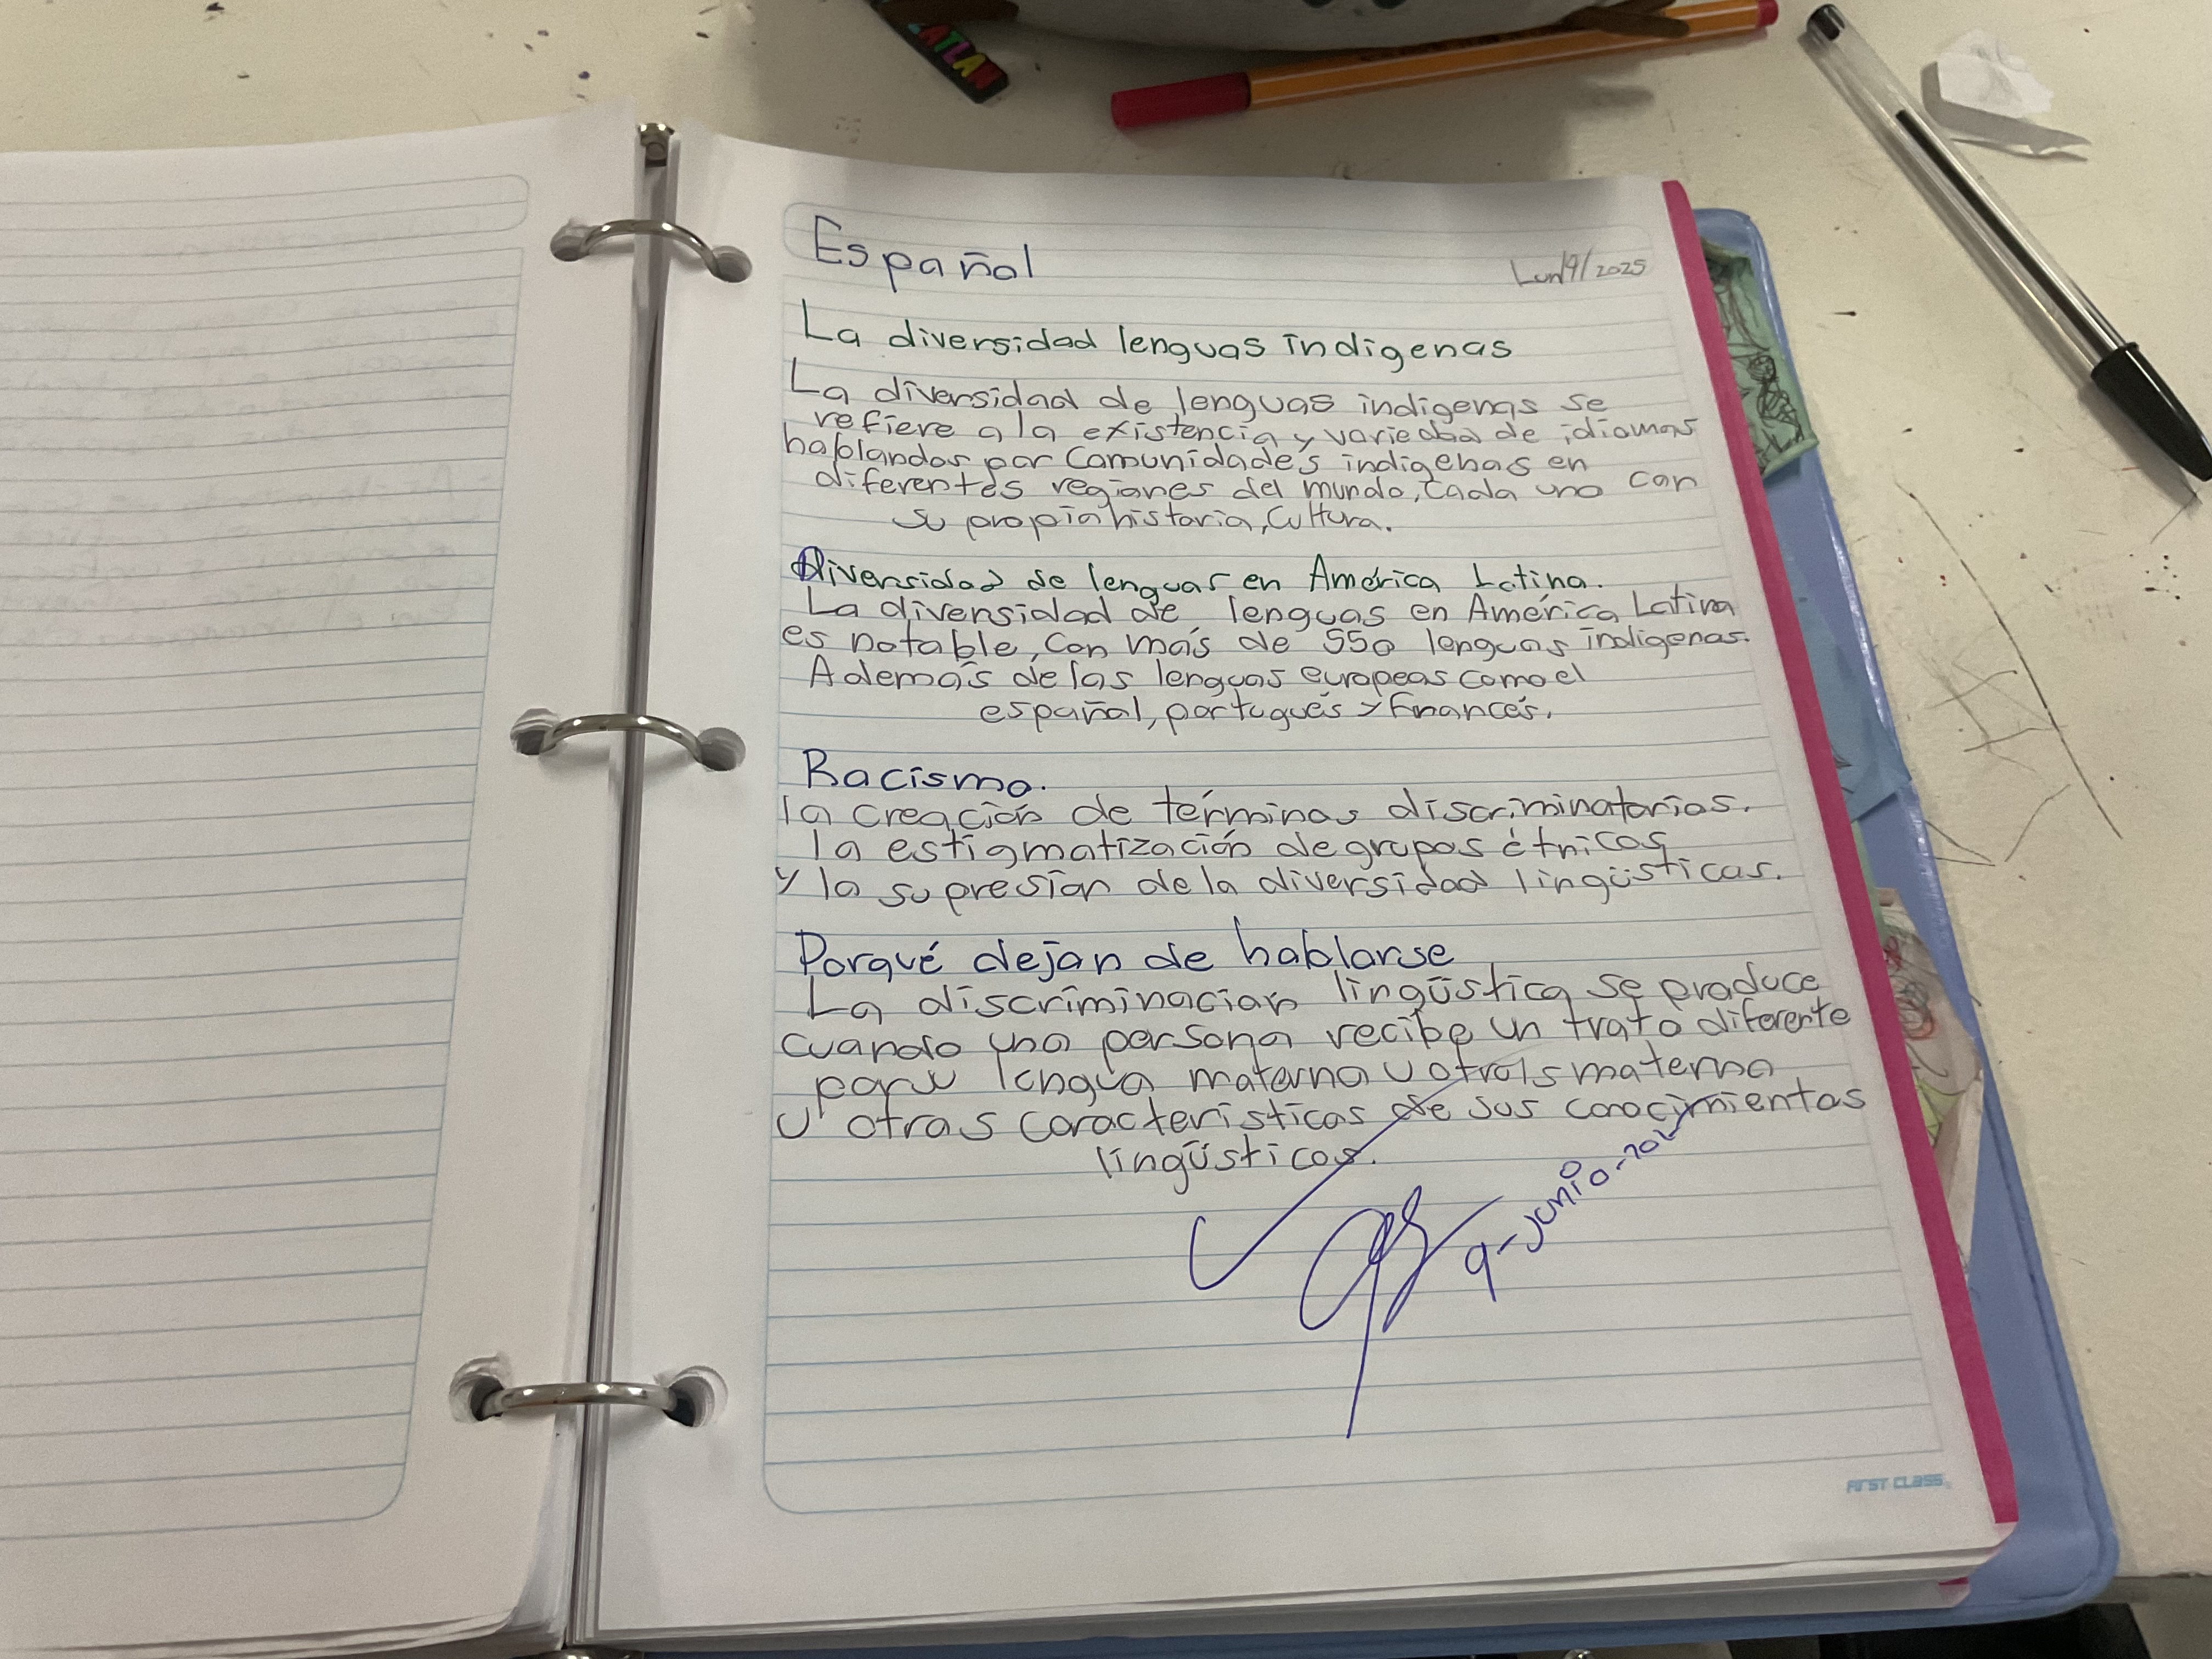 ATLAN
Español
Lun/9/2025
La diversidad lenguas indigenas
La diversidad de lenguas indigenas se
refiere a la existencia y variedad de idiomas
hablandos por Comunidades indigenas en
diferentes regiones del mundo, cada uno con
su propia historia, Cultura.
Diversidad de lenguas en América Latina.
La diversidad de lenguas en América Latina
es notable, con más de 550 lenguas indigenas.
Además de las lenguas europeas como el
español, portugués y francés.
Racismo.
la creación de términos discriminatorios.
la estigmatización de grupos étnicos
y la supresion de la diversidad lingüsticas.
Porqué dejan de hablarse
La discriminacion lingüstica se produce
cuando una persona recibe un trato diferente
lengua materna u materna
u otras caracteristicas de sus conocimientos
lingüsticos.
9-junio-202
FIRST CLASS